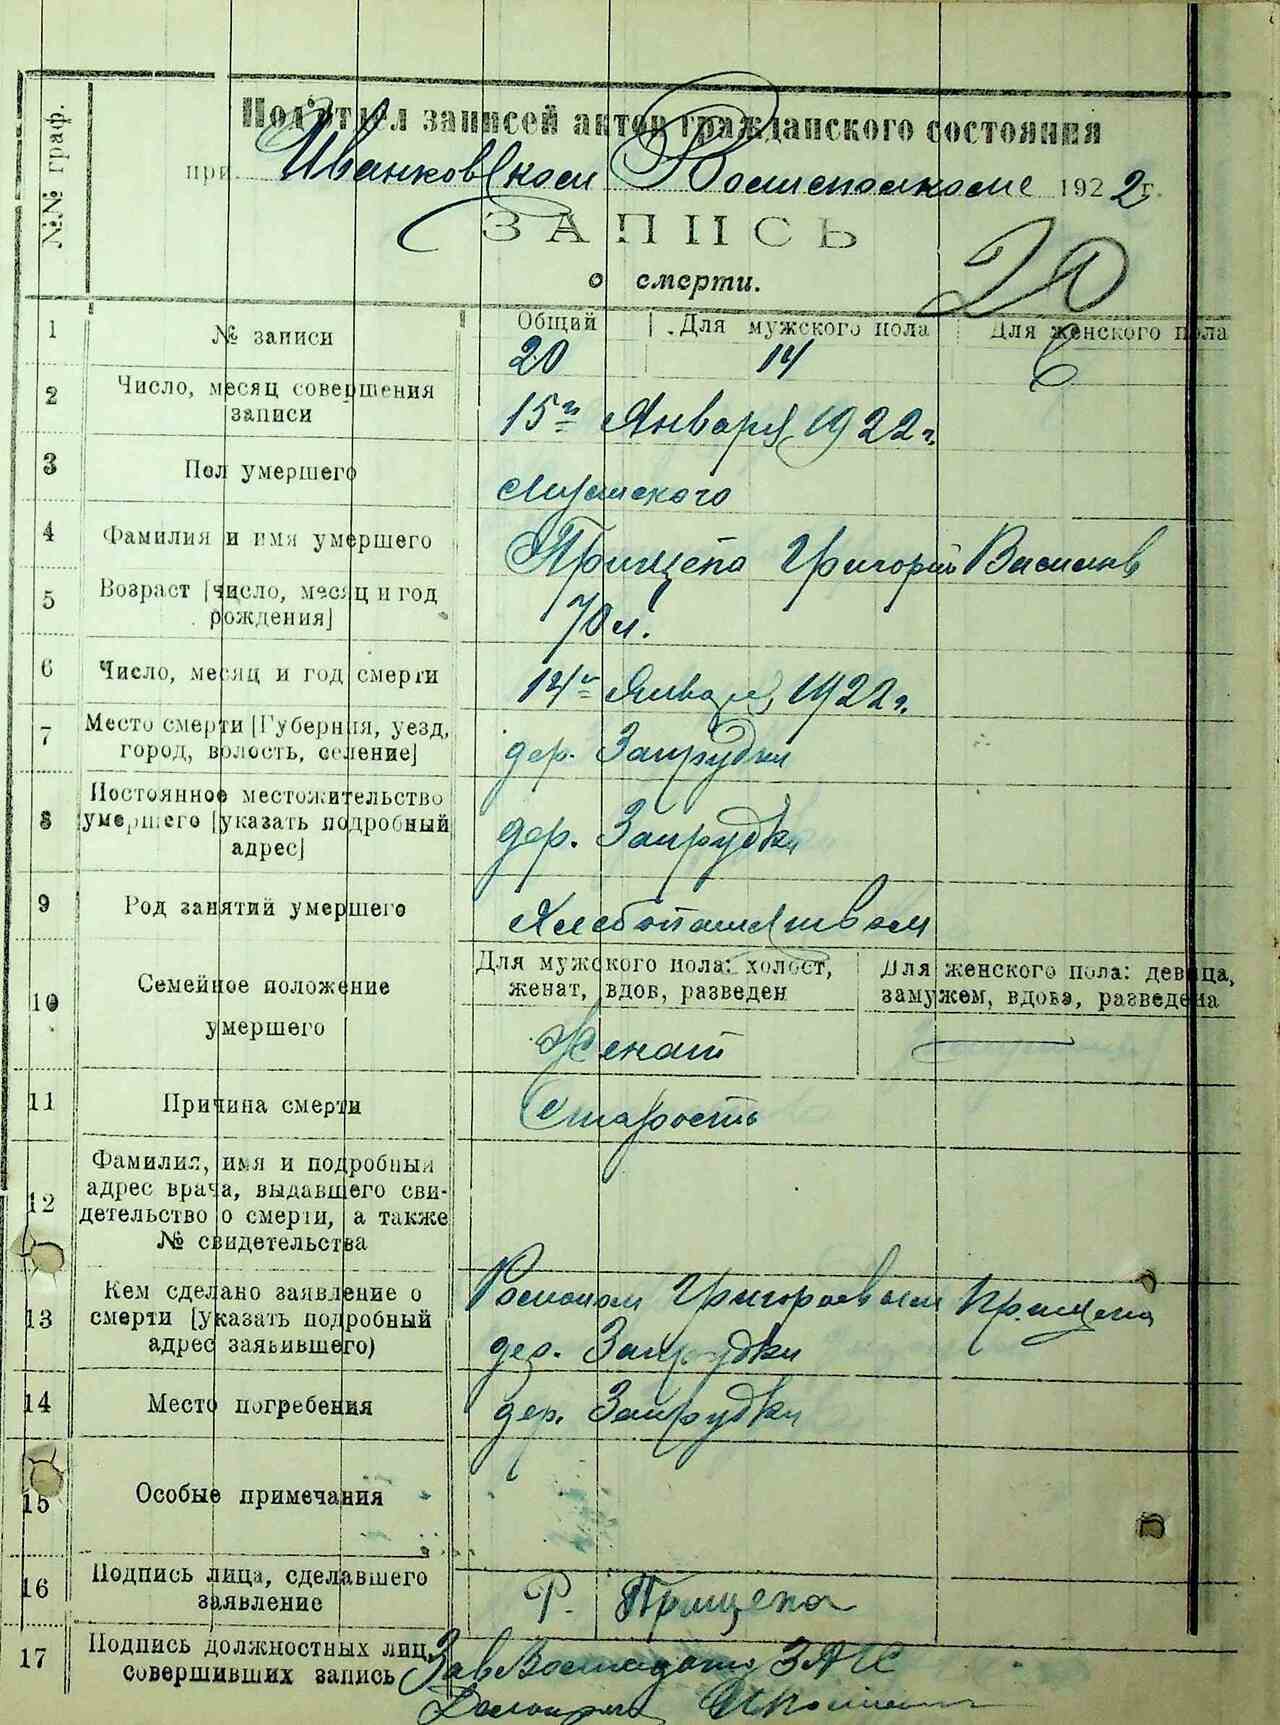 №№ граф.
Подотдел записей актов гражданского состояния
при Иванковском Волисполкоме 1922 г.
ЗАПИСЬ
20
о смерти.
1 № записи Общий Для мужского пола Для женского пола
20 14 6
2 Число, месяц совершения
записи
15го Января 1922 г.
3 Пол умершего
Мужского
4 Фамилия и имя умершего
Прищепа Григорий Васильев
5 Возраст [число, месяц и год
рождения]
70 л.
6 Число, месяц и год смерти
14го Января 1922 г.
7 Место смерти [Губерния, уезд,
город, волость, селение]
дер. Запрудки
8 Постоянное местожительство
умершего [указать подробный
адрес]
дер. Запрудки
9 Род занятий умершего
Хлебопашеством
10 Семейное положение
умершего
Для мужского пола: холост,
женат, вдов, разведен
Для женского пола: девица,
замужем, вдова, разведена
Женат —
11 Причина смерти
Старость
12 Фамилия, имя и подробный
адрес врача, выдавшего сви-
детельство о смерти, а также
№ свидетельства
13 Кем сделано заявление о
смерти [указать подробный
адрес заявившего)
Романом Григорьевым Прищепа
дер. Запрудки
14 Место погребения
дер. Запрудки
15 Особые примечания
16 Подпись лица, сделавшего
заявление
Р. Прищепа
17 Подпись должностных лиц,
совершивших запись
Зав ЗАГС